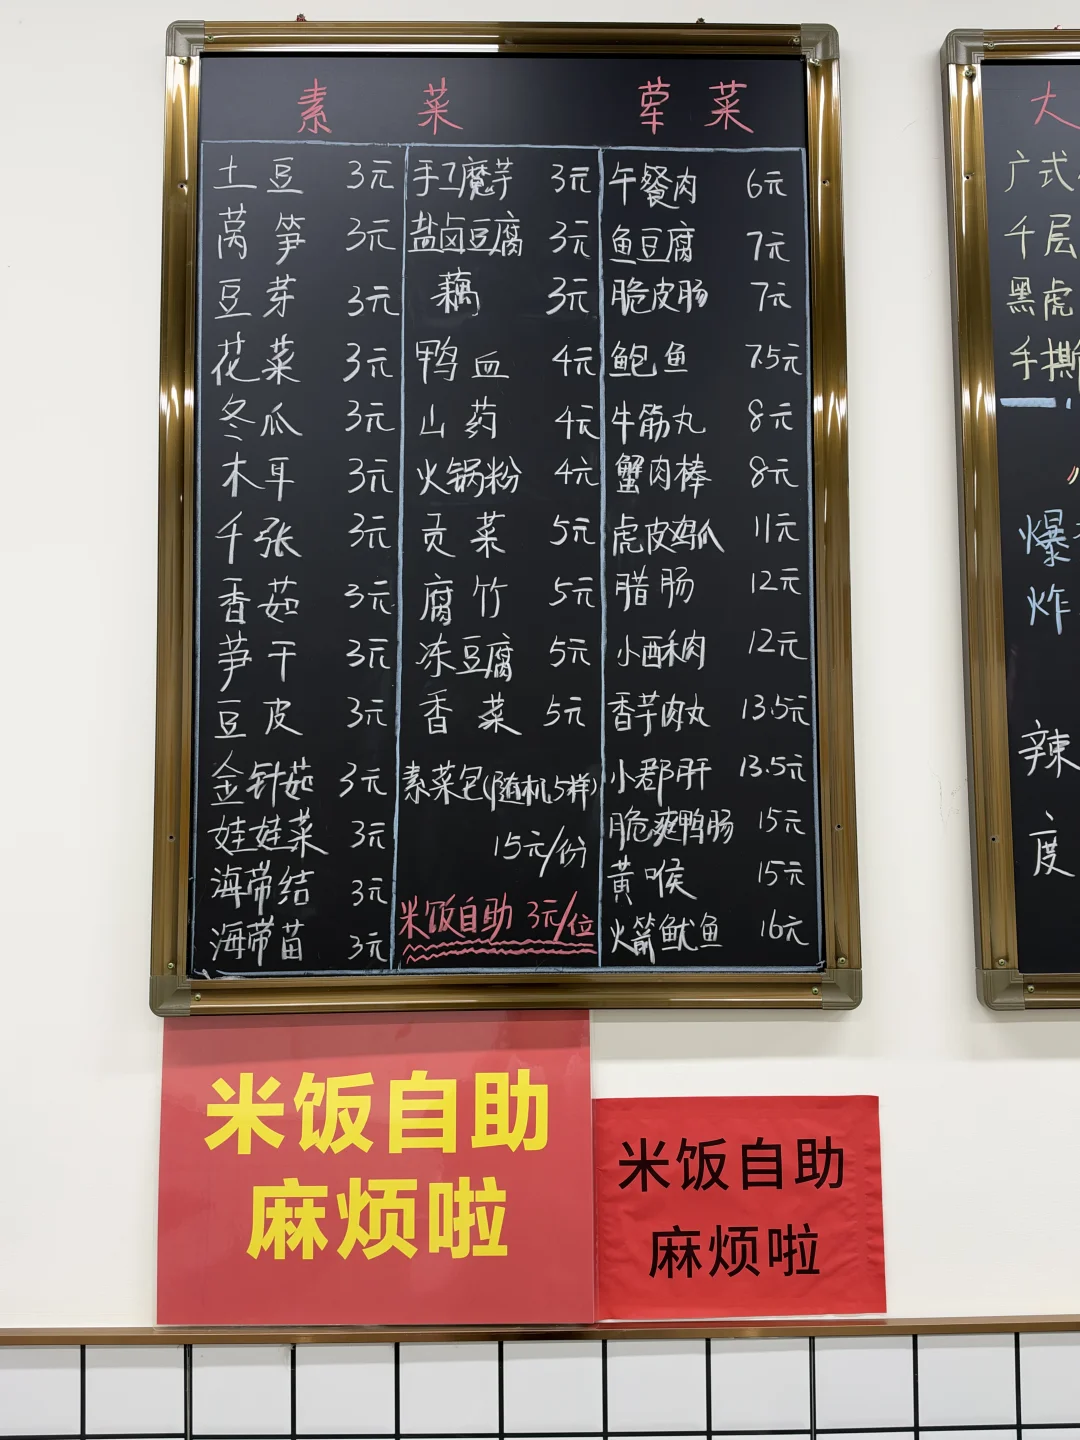 素菜 荤菜
土豆 3元
莴笋 3元
豆芽 3元
花菜 3元
冬瓜 3元
木耳 3元
千张 3元
香茹 3元
笋干 3元
豆皮 3元
金针茹 3元
娃娃菜 3元
海带结 3元
海带苗 3元
手工魔芋 3元
盐卤豆腐 3元
藕 3元
鸭血 4元
山药 4元
火锅粉 4元
贡菜 5元
腐竹 5元
冻豆腐 5元
香菜 5元
素菜包(随机5样)
15元/份
米饭自助 3元/位
午餐肉 6元
鱼豆腐 7元
脆皮肠 7元
鲍鱼 7.5元
牛筋丸 8元
蟹肉棒 8元
虎皮鸡爪 11元
腊肠 12元
小酥肉 12元
香芋肉丸 13.5元
小郡肝 13.5元
脆爽鸭肠 15元
黄喉 15元
火箭鱿鱼 16元
大
广式
千层
黑虎
手撕
爆
炸
辣
度
米饭自助
麻烦啦
米饭自助
麻烦啦